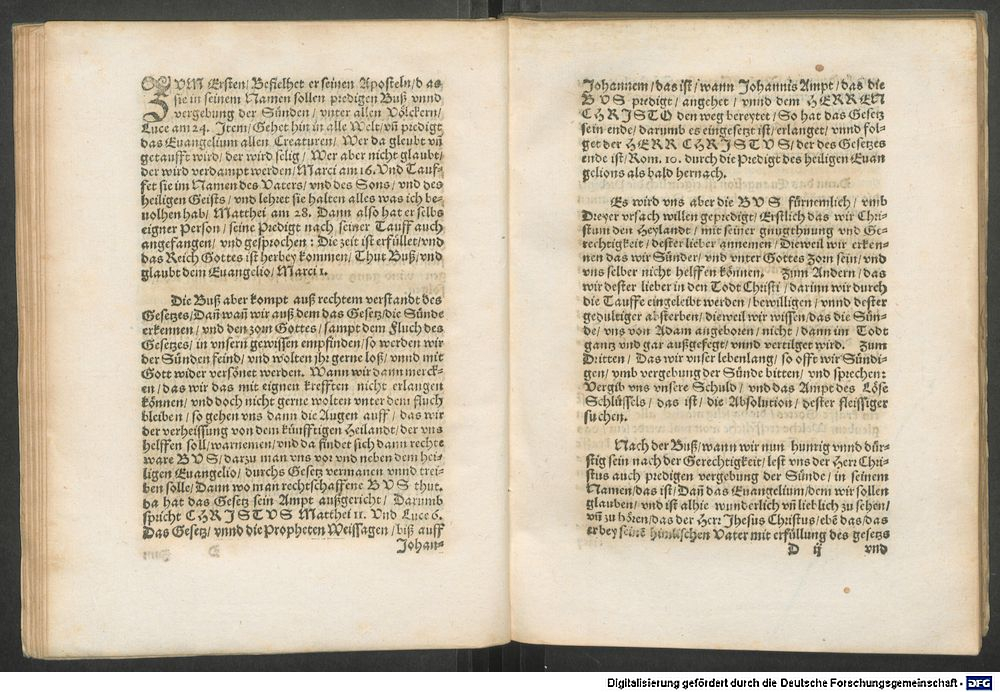 ZVM Ersten/ Befielhet er seinen Aposteln/ d as
sie in seinem Namen sollen predigen Buß vnnd
vergebung der Sünden/ vnter allen Völckern/
Luce am 24. Item/ Gehet hin in alle Welt/ vñ predigt
das Euangelium allen Creaturen/ Wer da gleubt vñ
getaufft wird/ der wird selig/ Wer aber nicht glaubt/
der wird verdampt werden/ Marci am 16. Vnd Tauf-
fet sie in Namen des Vaters/ vnd des Sons/ vnd des
heiligen Geists/ vnd lehret sie halten alles was ich be-
uolhen hab/ Matthei am 28. Dann also hat er selbs
eigner Person/ seine Predigt nach seiner Tauff auch
angefangen/ vnd gesprochen: Die zeit ist erfüllet/ vnd
das Reich Gottes ist herbey kommen/ Thut Buß/ vnd
glaubt dem Euangelio/ Marci 1.
Die Buß aber kompt auß rechtem verstandt des
Gesetzes/ Dañ wañ wir auß dem das Gesetz/ die Sünde
erkennen/ vnd den zorn Gottes/ sampt dem Fluch des
Gesetzes/ in vnsern gewissen empfinden/ so werden wir
der Sünden feind/ vnd wolten jhr gerne loß/ vnnd mit
Gott wider versönet werden. Wann wir dann merck-
en/ das wir das mit eignen krefften nicht erlangen
können/ vnd doch nicht gerne wolten vnter dem fluch
bleiben/ so gehen vns dann die Augen auff/ das wir
der verheissung von dem künfftigen Heilandt/ der vns
helffen soll/ warnemen/ vnd da findet sich dann rechte
ware BVS/ darzu man vns vor vnd neben dem hei-
ligen Euangelio/ durchs Gesetz vermanen vnnd trei-
ben solle/ Dann wo man rechtschaffene BVS thut.
da hat das Gesetz sein Ampt außgericht/ Darumb
spricht CHRISTVS Matthei 11. Vnd Luce 6.
Das Gesetz/ vnnd die Propheten Weissagen/ biß auff
Johan-
Johannem/ das ist/ wann Johannis Ampt/ das die
BVS predigt/ angehet/ vnnd dem HERREN
CHRISTO den weg bereytet/ So hat das Gesetz
sein ende/ darumb es eingesetzt ist/ erlanget/ vnnd fol-
get der HERR CHRISTVS/ der des Gesetzes
ende ist/ Rom. 10. durch die Predigt des heiligen Euan
gelions als bald hernach.
Es wird vns aber die BVS fürnemlich/ vmb
Dreyer vrsach willen gepredigt/ Erstlich das wir Chri-
stum den Heylandt/ mit seiner gnugthuung vnd Ge-
rechtigkeit/ dester lieber annemen/ Dieweil wir erken-
nen das wir Sünder/ vnd vnter Gottes Zorn sein/ vnd
vns selber nicht helffen können. Zum Andern/ das
wir dester lieber in den Todt Christi/ darinn wir durch
die Tauffe eingeleibt werden/ bewilligen/ vnnd dester
gedultiger absterben/ dieweil wir wissen/ das die Sün-
de/ vns von Adam angeboren/ nicht/ dann im Todt
gantz vnd gar außgefegt/ vnnd vertilget wird. Zum
Dritten/ Das wir vnser lebenlang/ so offt wir Sündi-
gen/ vmb vergebung der Sünde bitten/ vnd sprechen:
Vergib vns vnsere Schuld/ vnd das Ampt des Löse
Schlüssels/ das ist/ die Absolution/ dester fleissiger
suchen.
Nach der Buß/ wann wir nun hunrig vnnd dür-
stig sein nach der Gerechtigkeit/ lest vns der Herr Chri-
stus auch predigen vergebung der Sünde/ in seinem
Namen/ das ist/ Dañ das Euangelium/ dem wir sollen
glauben/ vnd ist alhie wunderlich vñ lieblich zu sehen/
vñ zu hören/ das der Herr Jhesus Christus/ ebē das/ das
er bey seinē himlischen Vater mit erfüllung des gesetzs
D ij vnd
Digitalisierung gefördert durch die Deutsche Forschungsgemeinschaft - DFG